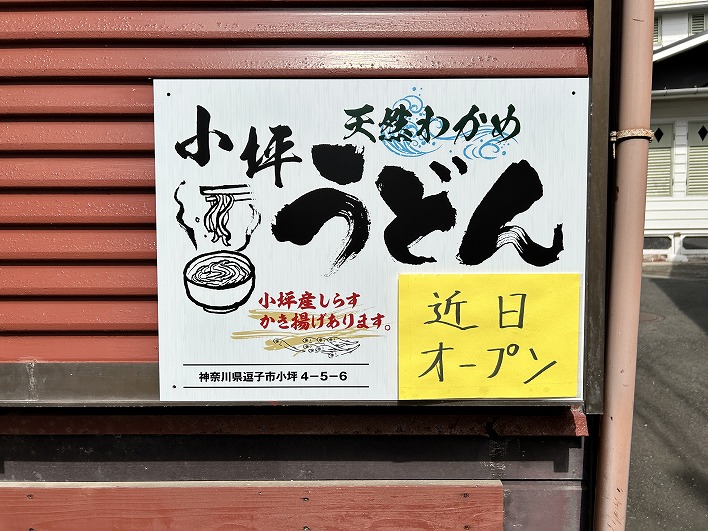 天然わかめ
小坪
うどん
小坪産しらす
かき揚げあります。
神奈川県逗子市小坪 4−5−6
近日
オープン